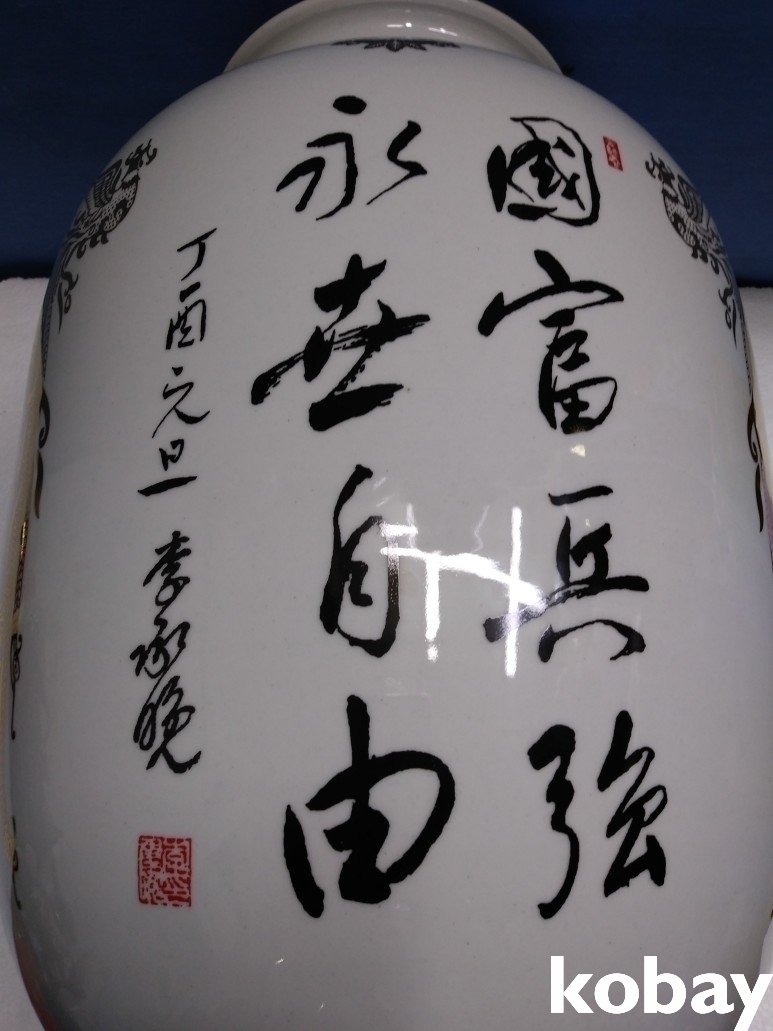 國富兵強
永世自由
丁酉元旦 李承晚
kobay